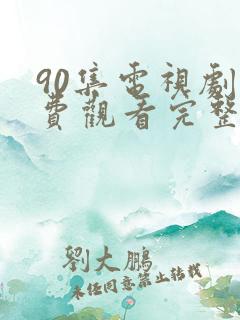 90集電視劇
費觀看完整
劉大鵬
未经同意禁止转载